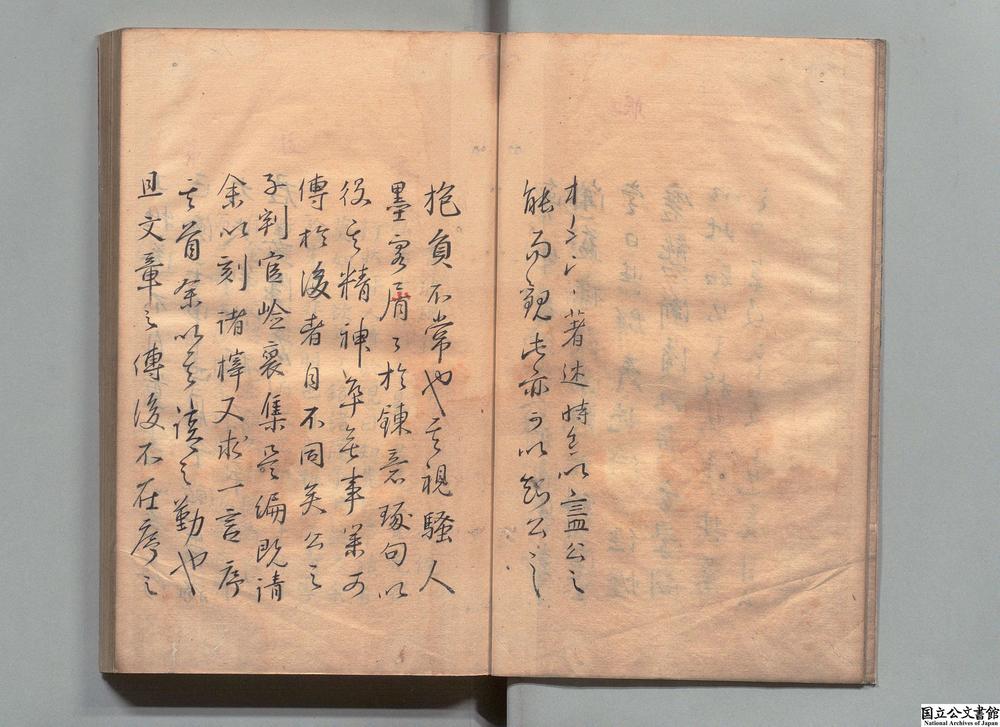 著述時無以盡公之
能而観此亦可以知公之
抱負不常也其視騷人
墨客屑々於鍊意琢句以
役其精神卒無事業可
傳於後者自不同矣公之
子判官嶮裒集是編既請
余以刻諸梓又求一言序
其首余以其請之勤也
且文章之傳後不在序之
国立公文書館
National Archives of Japan